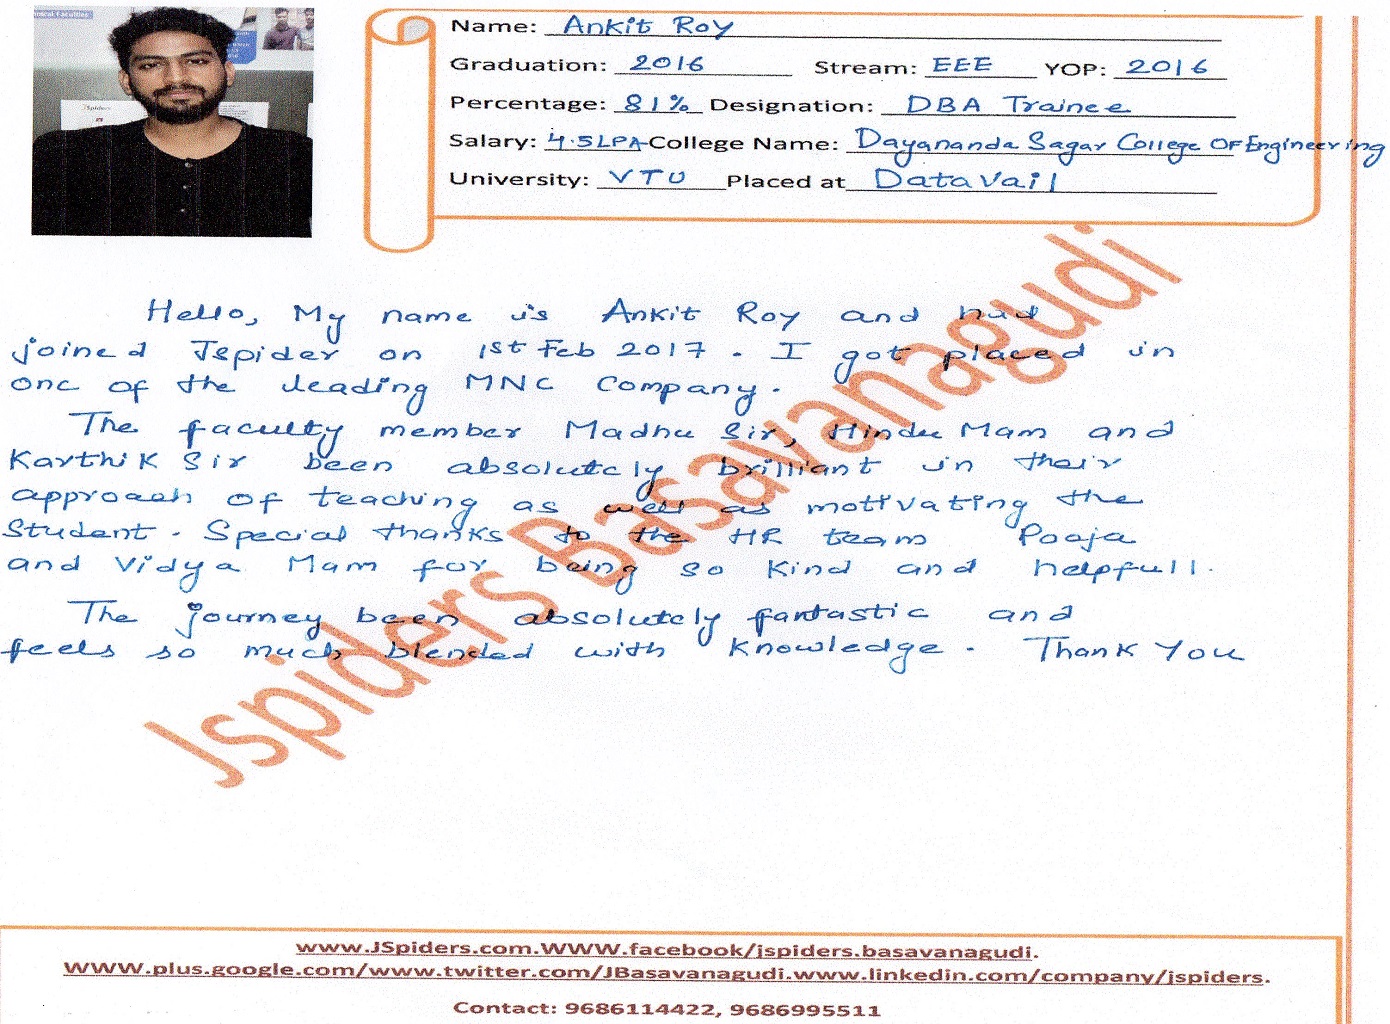 Name: Ankit Roy
Graduation: 2016 Stream: EEE YOP: 2016
Percentage: 81% Designation: DBA Trainee
Salary: 4.5LPA College Name: Dayananda Sagar College OF Engineering
University: VTU Placed at Datavail
Hello, My name is Ankit Roy and had
joined Jspider on 1st Feb 2017. I got placed in
one of the leading MNC Company.
The faculty member Madhu Sir, Hindu Mam and
Karthik Sir been absolutely brilliant in their
approach of teaching as well as motivating the
Student. Special thanks to the HR team Pooja
and Vidya Mam for being so kind and helpfull.
The journey been absolutely fantastic and
feels so much blended with knowledge. Thank You
Jspiders Basavanagudi
www.JSpiders.com.WWW.facebook/jspiders.basavanagudi.
WWW.plus.google.com/www.twitter.com/JBasavanagudi.www.linkedin.com/company/jspiders.
Contact: 9686114422, 9686995511